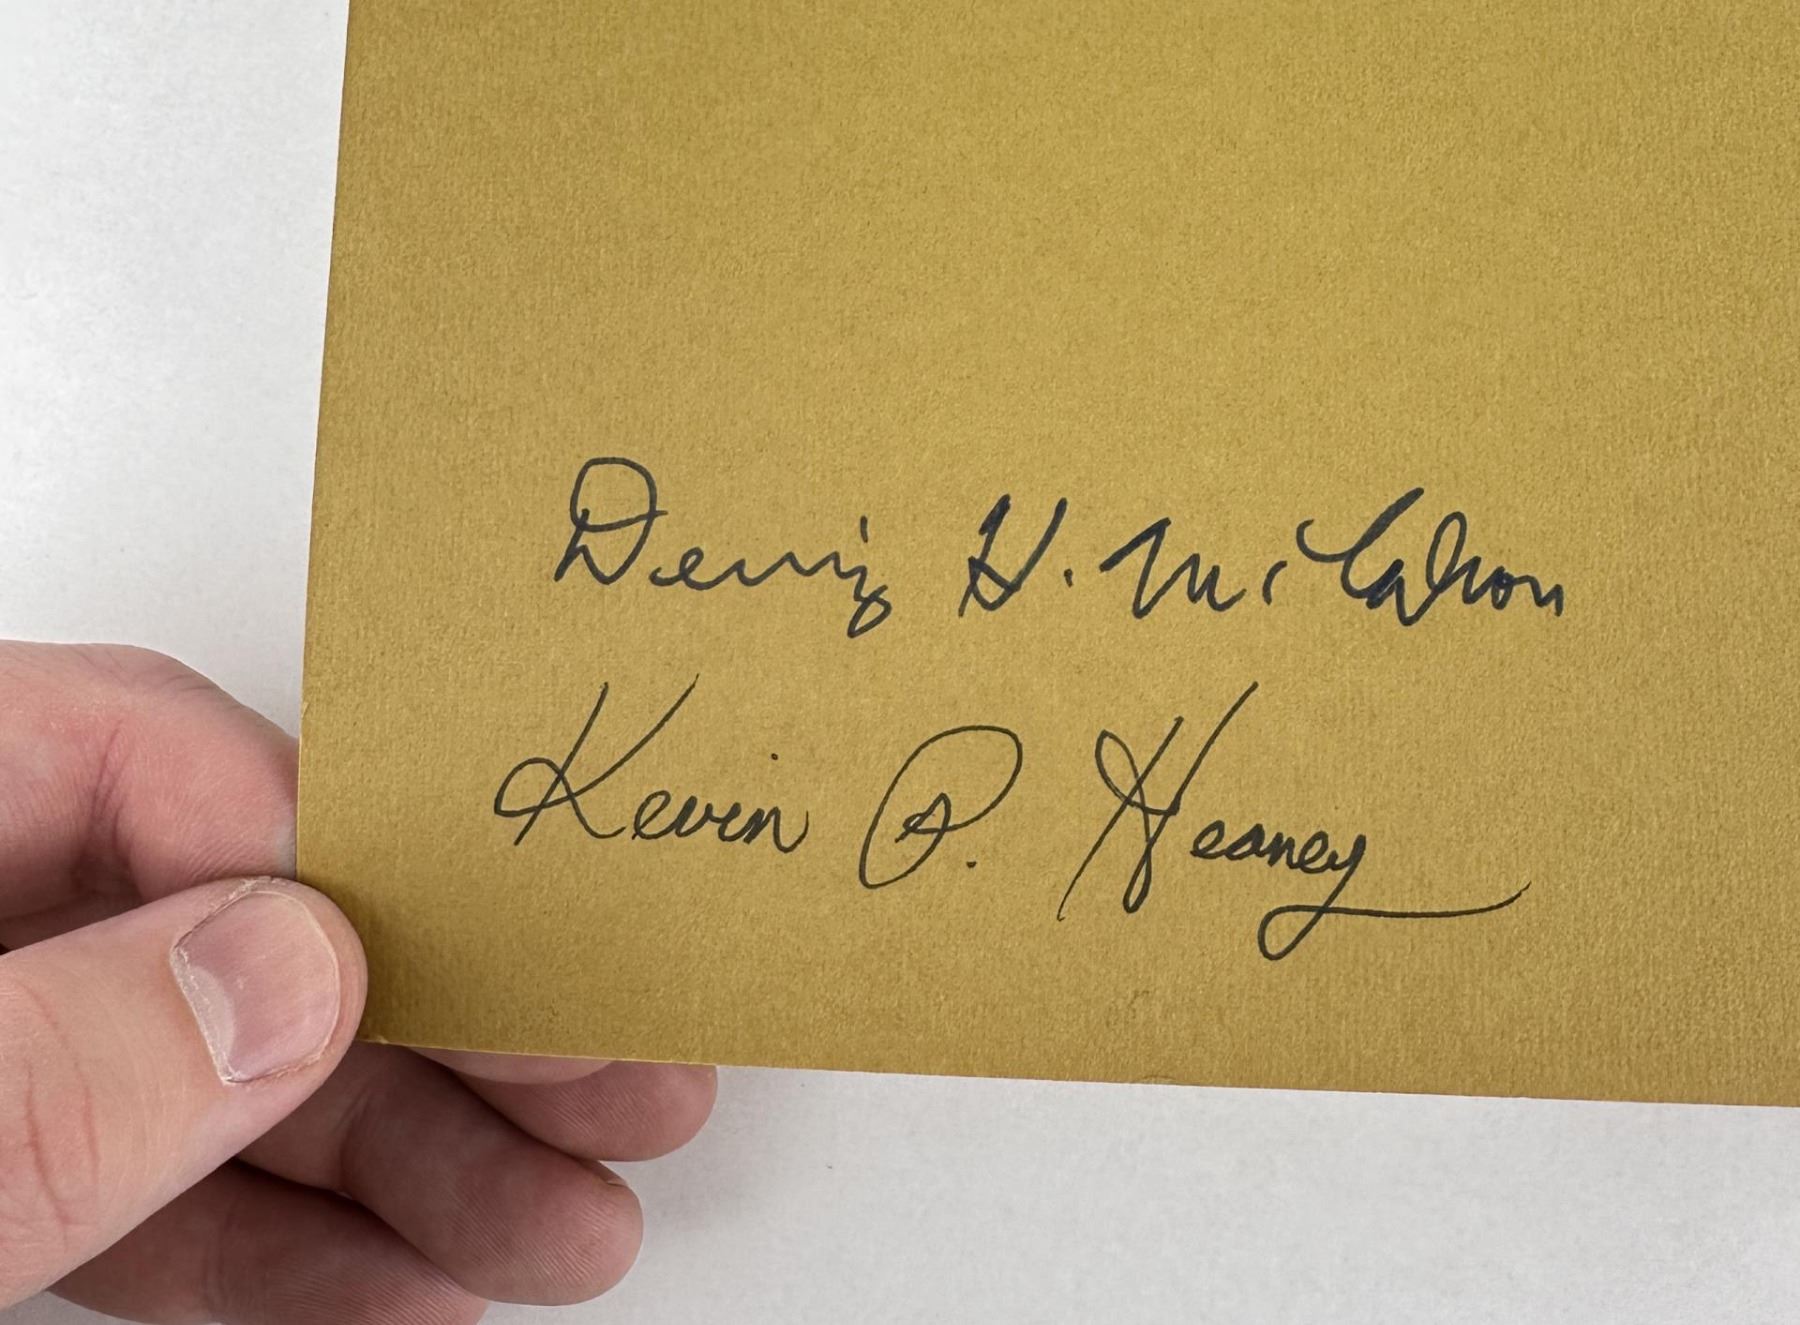 Dennis H. McMahon
Kevin P. Heaney